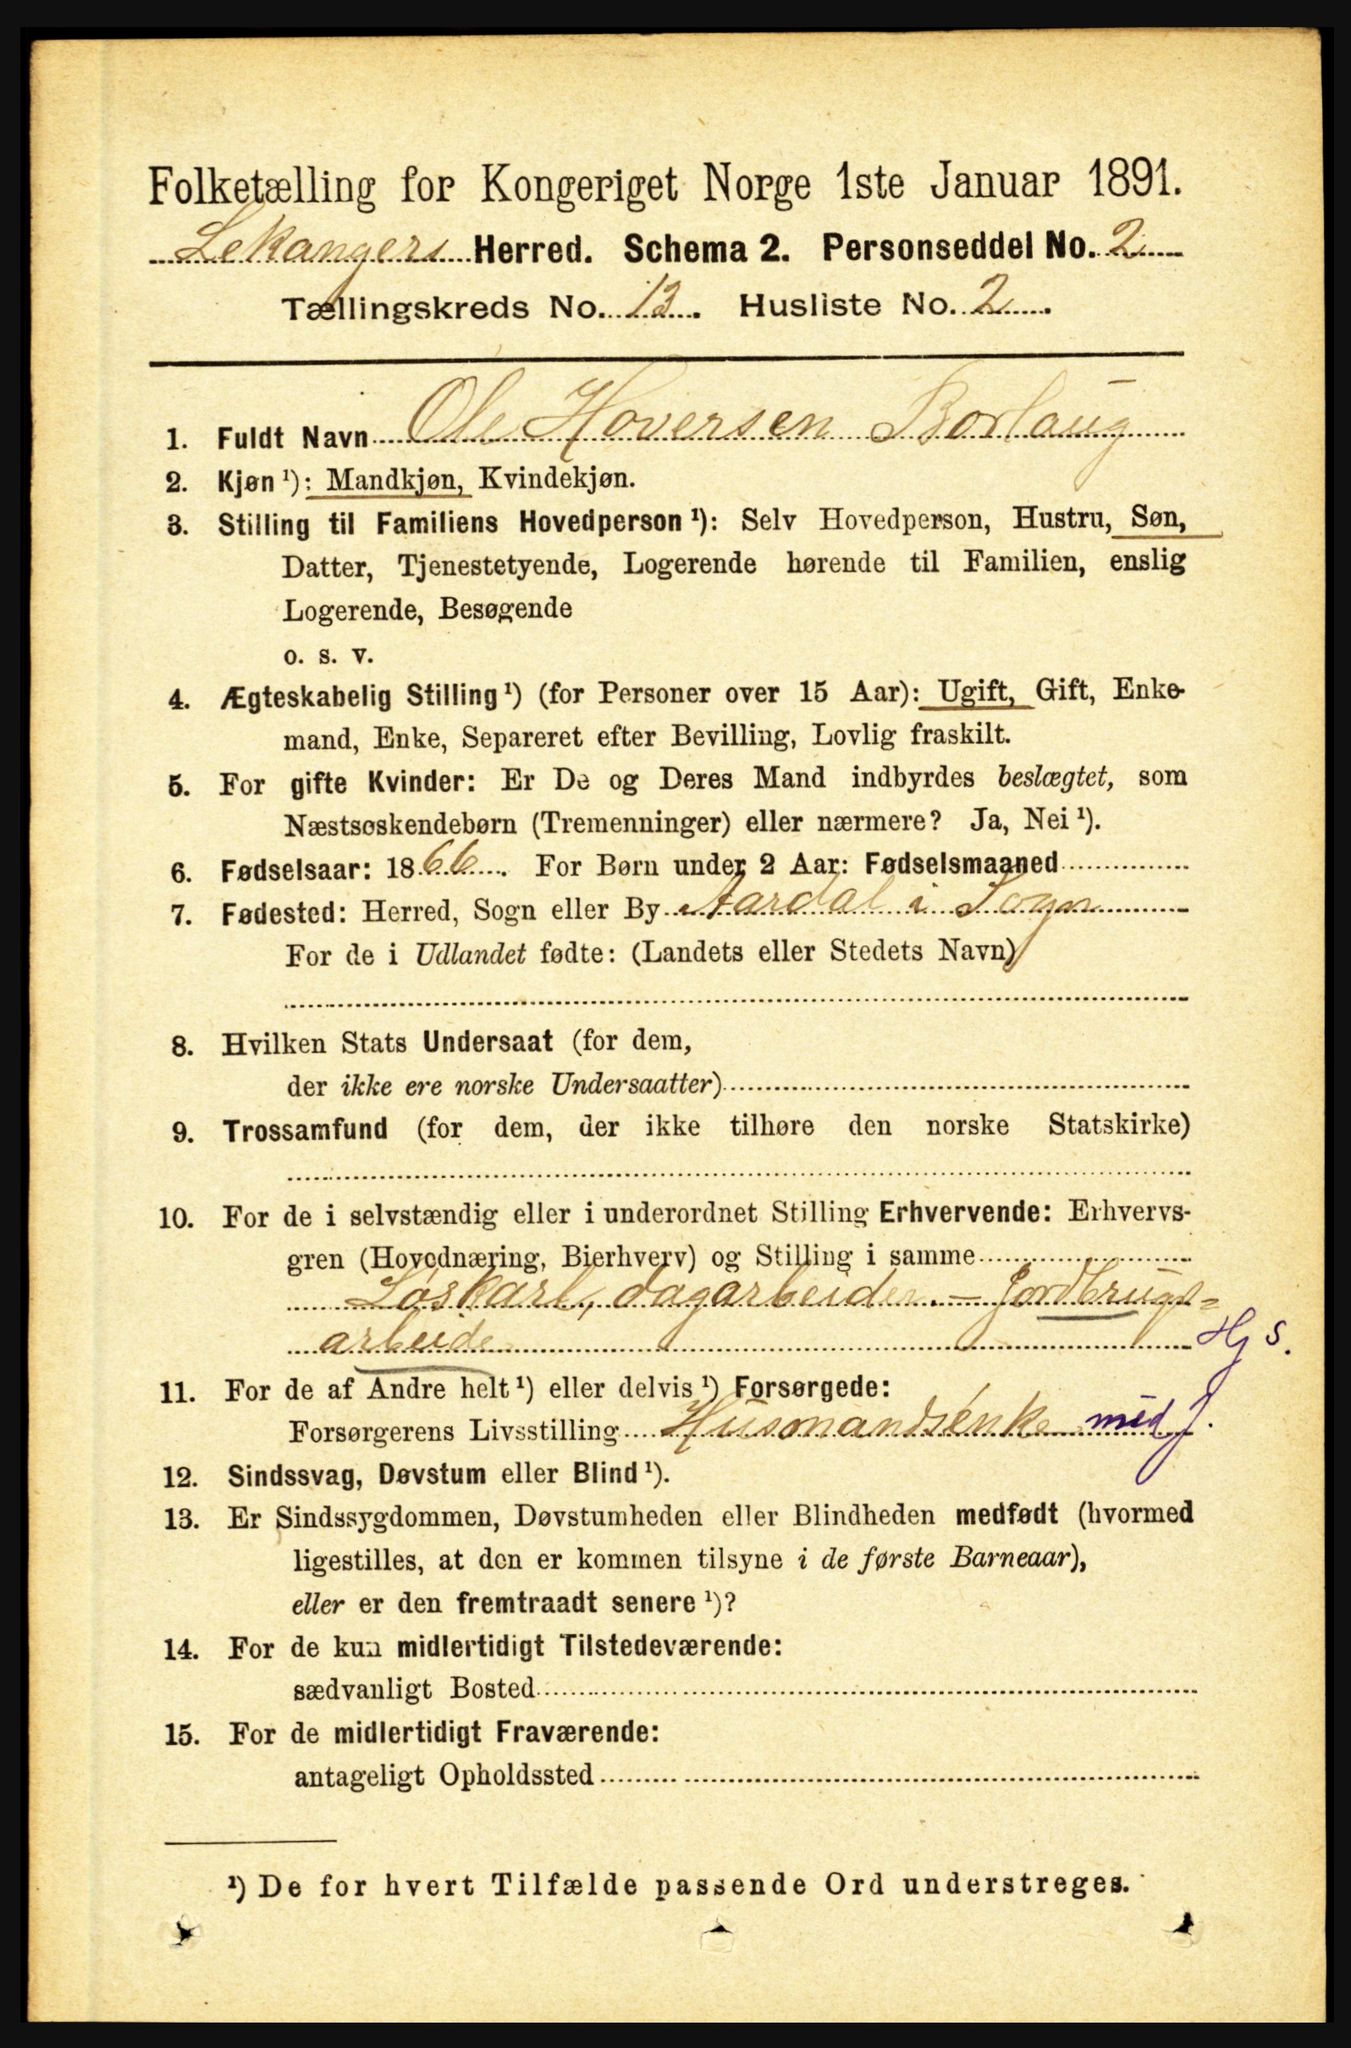 Folketælling for Kongeriget Norge 1ste Januar 1891.
Lekangers Herred. Schema 2. Personseddel No. 2
Tællingskreds No. 13. Husliste No. 2.
1. Fuldt Navn Ole Hoversen Borlaug
2. Kjøn ¹): Mandkjøn, Kvindekjøn.
3. Stilling til Familiens Hovedperson ¹): Selv Hovedperson, Hustru, Søn,
Datter, Tjenestetyende, Logerende hørende til Familien, enslig
Logerende, Besøgende
o. s. v.
4. Ægteskabelig Stilling ¹) (for Personer over 15 Aar): Ugift, Gift, Enke-
mand, Enke, Separeret efter Bevilling, Lovlig fraskilt.
5. For gifte Kvinder: Er De og Deres Mand indbyrdes beslægtet, som
Næstsøskendebørn (Tremenninger) eller nærmere? Ja, Nei ¹).
6. Fødselsaar: 1866. For Børn under 2 Aar: Fødselsmaaned
7. Fødested: Herred, Sogn eller By Aardal i Sogn
For de i Udlandet fødte: (Landets eller Stedets Navn)
8. Hvilken Stats Undersaat (for dem,
der ikke ere norske Undersaatter)
9. Trossamfund (for dem, der ikke tilhøre den norske Statskirke)
10. For de i selvstændig eller i underordnet Stilling Erhvervende: Erhvervs-
gren (Hovednæring, Bierhverv) og Stilling i samme
Løskarl, dagarbeider. – Jordbrugs=
arbeide Hj S.
11. For de af Andre helt ¹) eller delvis ¹) Forsørgede:
Forsørgerens Livsstilling Husmandsenke med J.
12. Sindssvag, Døvstum eller Blind ¹).
13. Er Sindssygdommen, Døvstumheden eller Blindheden medfødt (hvormed
ligestilles, at den er kommen tilsyne i de første Barneaar),
eller er den fremtraadt senere ¹)?
14. For de kun midlertidigt Tilstedeværende:
sædvanligt Bosted
15. For de midlertidigt Fraværende:
antageligt Opholdssted
¹) De for hvert Tilfælde passende Ord understreges.